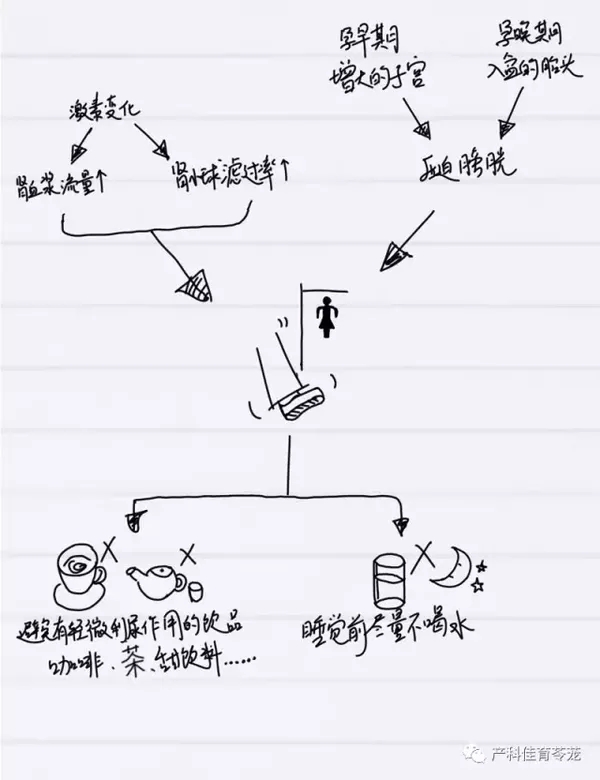 孕早期
增大的子宫
孕晚期
入盆的胎头
激素变化
肾血浆流量↑
肾小球滤过率↑
压迫膀胱
避免有轻微利尿作用的饮品
咖啡、茶、甜饮料……
睡觉前尽量不喝水
产科佳育苓茏